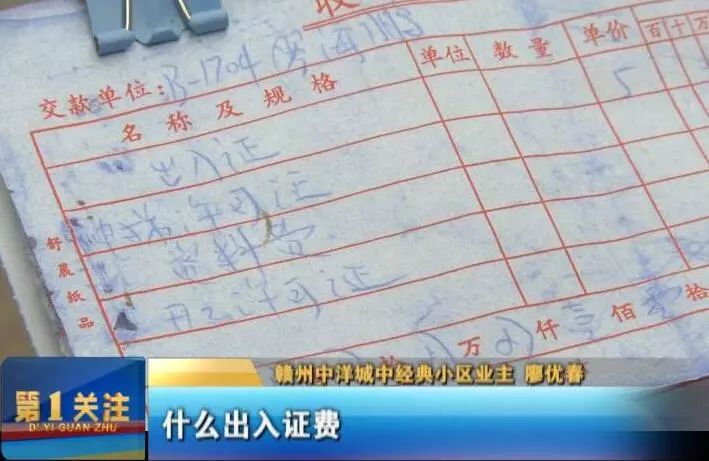 收
交款单位: B-1704
名称及规格 单位 数量 单价 百 十 万
5
出入证
许可证
资料费
开工许可证
舒晨纸品
万 仟 壹 佰 壹 拾
赣州中洋城中经典小区业主 廖优春
第1关注
DI YI GUAN ZHU
什么出入证费